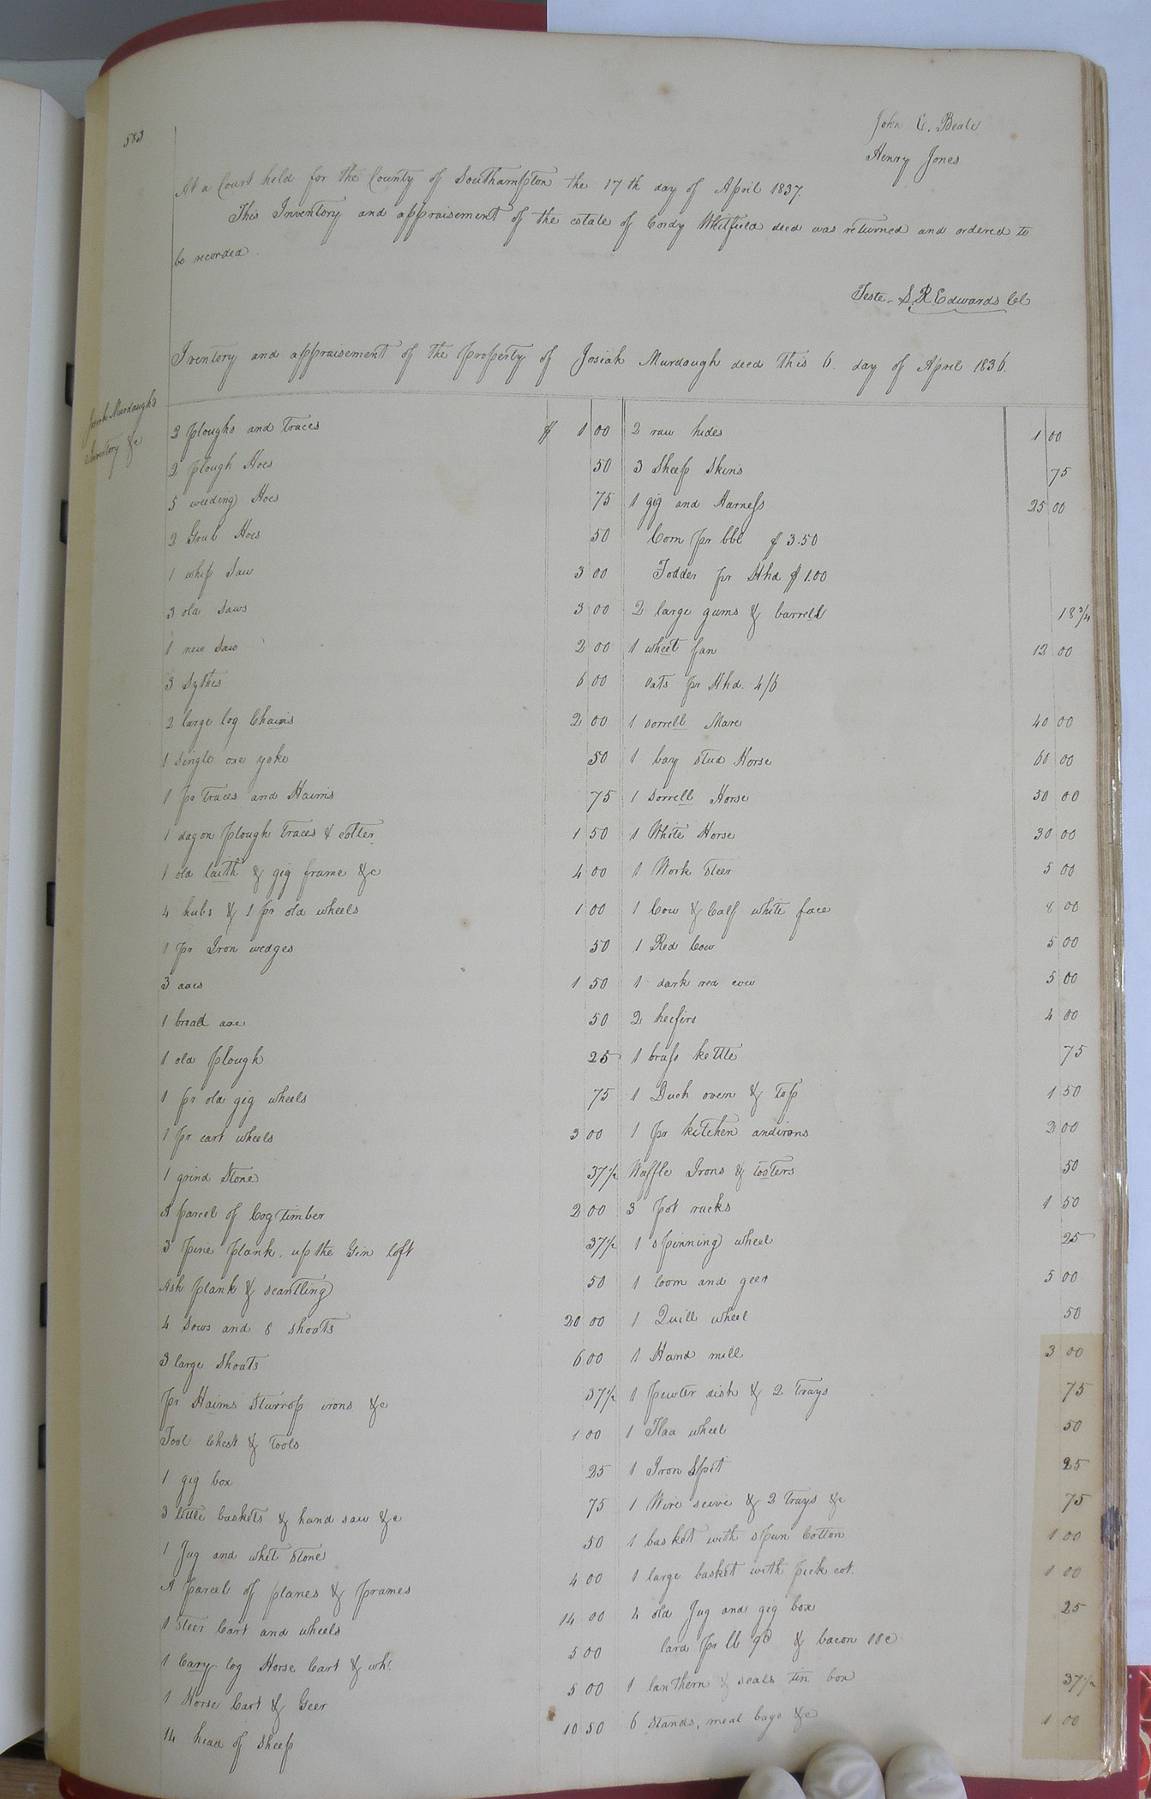 583
John C. Beale
Henry Jones
At a Court held for the County of Southampton the 17th day of April 1837.
This Inventory and appraisement of the estate of Cordy Whitfield decd was returned and ordered to
be recorded.
Teste. S. R. Edwards Cl
Inventory and appraisement of the property of Josiah Murdaugh decd this 6. day of April 1836.
Josiah Murdaugh's
Inventory &c
2 ploughs and Traces $ 1 00
2 plough Hoes 50
5 weeding Hoes 75
2 Grub Hoes 50
1 whip Saw 3 00
3 old Saws 3 00
1 new Saw 2 00
3 Sythes 6 00
2 large log Chains 2 00
1 single oxe yoke 50
1 pr Traces and Haims 75
1 dagon plough Traces & colter 1 50
1 old laith & gig frame &c 4 00
4 hubs & 1 pr old wheels 1 00
1 pr Iron wedges 50
3 axes 1 50
1 broad axe 50
1 old plough 25
1 pr old gig wheels 75
1 pr cart wheels 3 00
1 grind Stone 37½
A parcel of Cog timber 2 00
3 pine plank. up the Gin loft 37½
Ash plank & scantling 50
4 Sows and 8 shoats 20 00
3 large Shoats 6 00
pr Haims Sturrop irons &c 37½
Tool Chest & tools 1 00
1 gig box 25
3 little baskets & hand saw &c 75
1 Jug and whet Stone 50
A parcel of planes & frames 4 00
1 Steer Cart and wheels 14 00
1 Cary log Horse Cart & whs 5 00
1 Horse Cart & Geer 5 00
14 head of Sheep 10 50
2 raw hides 1 00
3 Sheep Skins 75
1 gig and Harness 25 00
Corn pr bbl $ 3.50
Fodder pr Hhd $ 1.00
2 large gums & barrell 18¾
1 wheet fan 12 00
Oats pr Hhd. 4/6
1 sorrell Mare 40 00
1 bay stud Horse 60 00
1 Sorrell Horse 30 00
1 White Horse 30 00
1 Work Steer 5 00
1 Cow & Calf white face 8 00
1 Red Cow 5 00
1 dark red cow 5 00
2 heefers 4 00
1 brass kettle 75
1 Duch oven & top 1 50
1 pr kitchen andirons 2 00
Waffle Irons & tosters 50
3 pot racks 1 50
1 spinning wheel 25
1 loom and geer 5 00
1 Quill wheel 50
1 Hand mill 3 00
1 pewter dish & 2 trays 75
1 Flax wheel 50
1 Iron Spit 25
1 Wire seive & 2 Trays &c 75
1 basket with spun Cotton 1 00
1 large basket with pick cot. 1 00
4 old Jug and gig box 25
lard pr lb 9d & bacon 11c
1 lanthern & seals tin box 37½
6 Stands, meal bags &c 1 00